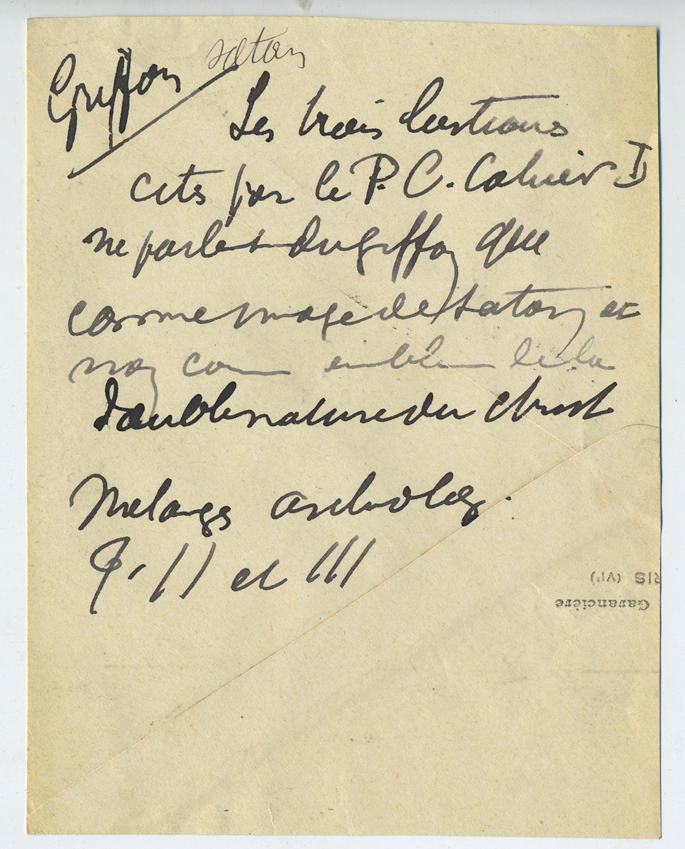 Griffon satan
Les trois bestiaires
cités par le P. C. Cahier I
ne parlent du griffon que
comme image de Satan, et
non comme emblème de la
double nature du Christ
Mélanges archéolog.
T. II et III
RIS (VIᵉ)
Garancière